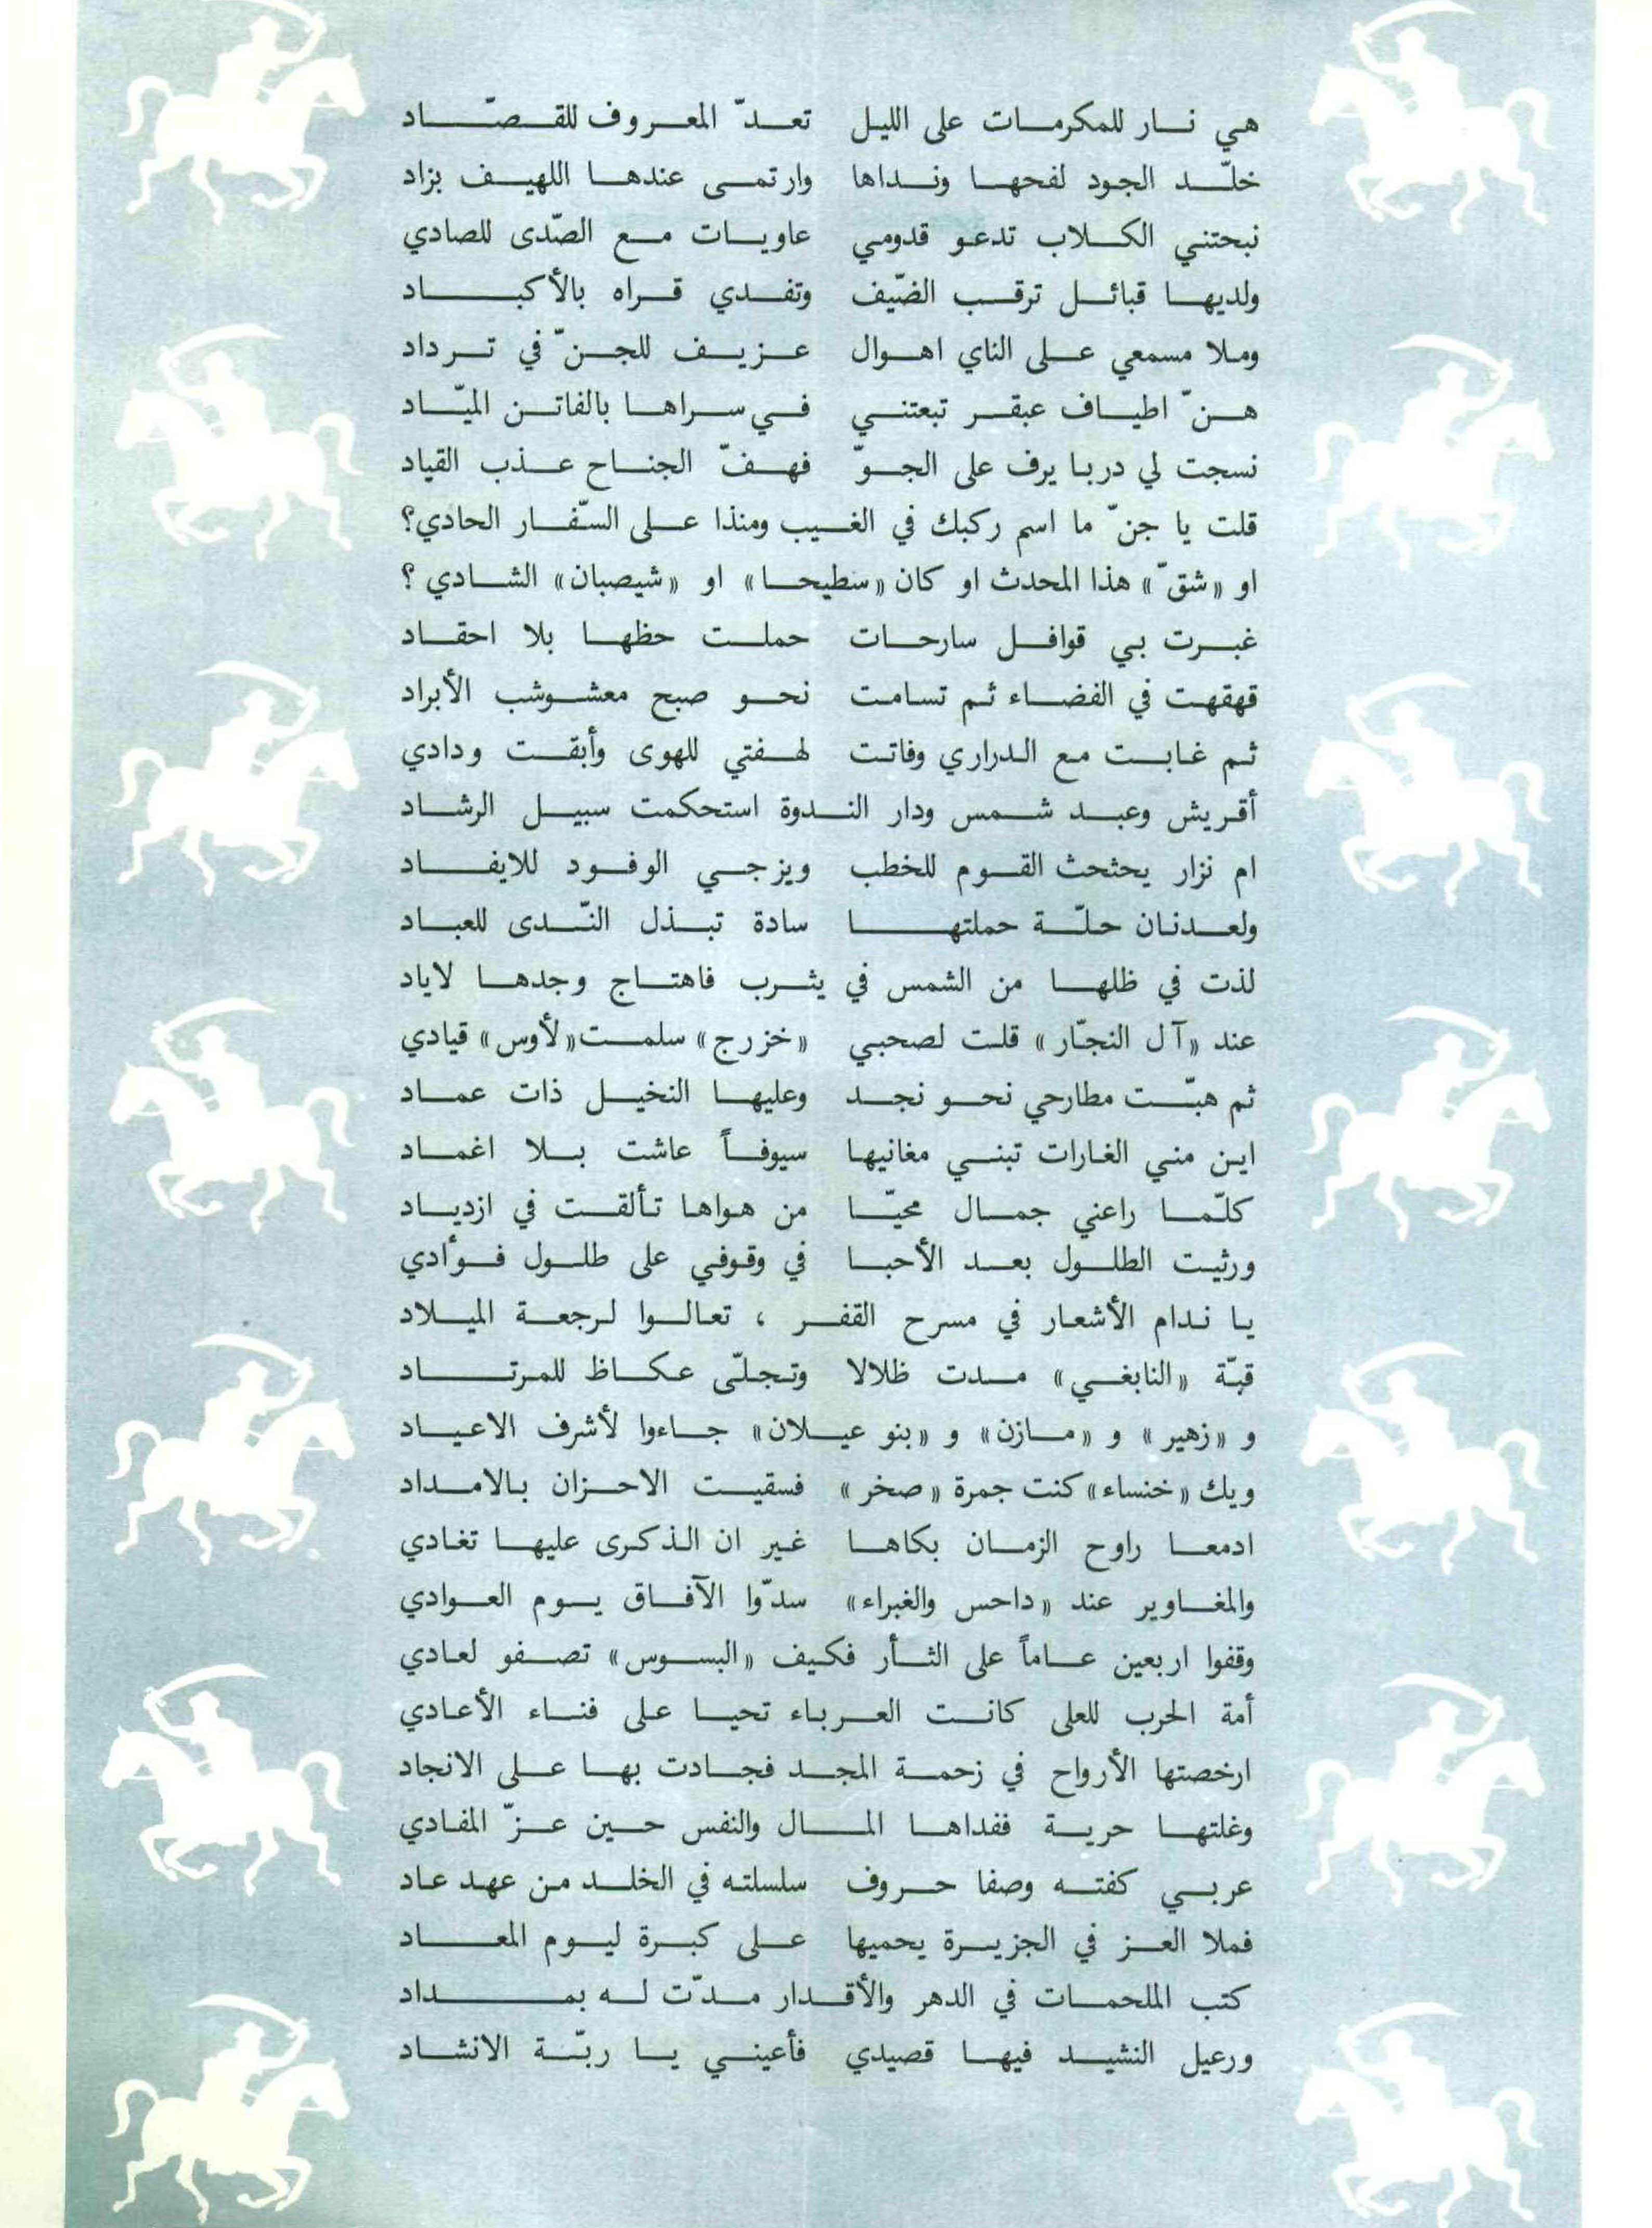 هي نار للمكرمات على الليل تعدّ المعروف للقصّاد
خلّد الجود لفحها ونداها وارتمى عندها اللهيف بزاد
نبحتني الكلاب تدعو قدومي عاويات مع الصّدى للصادي
ولديها قبائل ترقب الضّيف وتفدي قراه بالأكباد
وملا مسمعي على الناي اهوال عزيف للجنّ في ترداد
هنّ اطياف عبقر تبعتني في سراها بالفاتن الميّاد
نسجت لي دربا يرف على الجوّ فهفّ الجناح عذب القياد
قلت يا جنّ ما اسم ركبك في الغيب ومنذا على السّفار الحادي؟
او «شقّ» هذا المحدث او كان «سطيحا» او «شيصبان» الشادي ؟
غبرت بي قوافل سارحات حملت حظها بلا احقاد
قهقهت في الفضاء ثم تسامت نحو صبح معشوشب الأبراد
ثم غابت مع الدراري وفاتت لهفتي للهوى وأبقت ودادي
أقريش وعبد شمس ودار الندوة استحكمت سبيل الرشاد
ام نزار يحثحث القوم للخطب ويزجي الوفود للايفاد
ولعدنان حلّة حملتها سادة تبذل النّدى للعباد
لذت في ظلها من الشمس في يثرب فاهتاج وجدها لاياد
عند «آل النجّار» قلت لصحبي «خزرج» سلمت «لأوس» قيادي
ثم هبّت مطارحي نحو نجد وعليها النخيل ذات عماد
اين مني الغارات تبني مغانيها سيوفاً عاشت بلا اغماد
كلّما راعني جمال محيّا من هواها تألقت في ازدياد
ورثيت الطلول بعد الأحبا في وقوفي على طلول فؤادي
يا ندام الأشعار في مسرح القفر ، تعالوا لرجعة الميلاد
قبّة «النابغي» مدت ظلالا وتجلّى عكاظ للمرتاد
و «زهير» و «مازن» و «بنو عيلان» جاءوا لأشرف الاعياد
ويك «خنساء» كنت جمرة «صخر» فسقيت الاحزان بالامداد
ادمعا راوح الزمان بكاها غير ان الذكرى عليها تغادي
والمغاوير عند «داحس والغبراء» سدّوا الآفاق يوم العوادي
وقفوا اربعين عاماً على الثأر فكيف «البسوس» تصفو لعادي
أمة الحرب للعلى كانت العرباء تحيا على فناء الأعادي
ارخصتها الأرواح في زحمة المجد فجادت بها على الانجاد
وغلتها حرية ففداها المال والنفس حين عزّ المفادي
عربي كفته وصفا حروف سلسلته في الخلد من عهد عاد
فملا العز في الجزيرة يحميها على كبرة ليوم المعاد
كتب الملحمات في الدهر والأقدار مدّت له بمداد
ورعيل النشيد فيها قصيدي فأعيني يا ربّة الانشاد